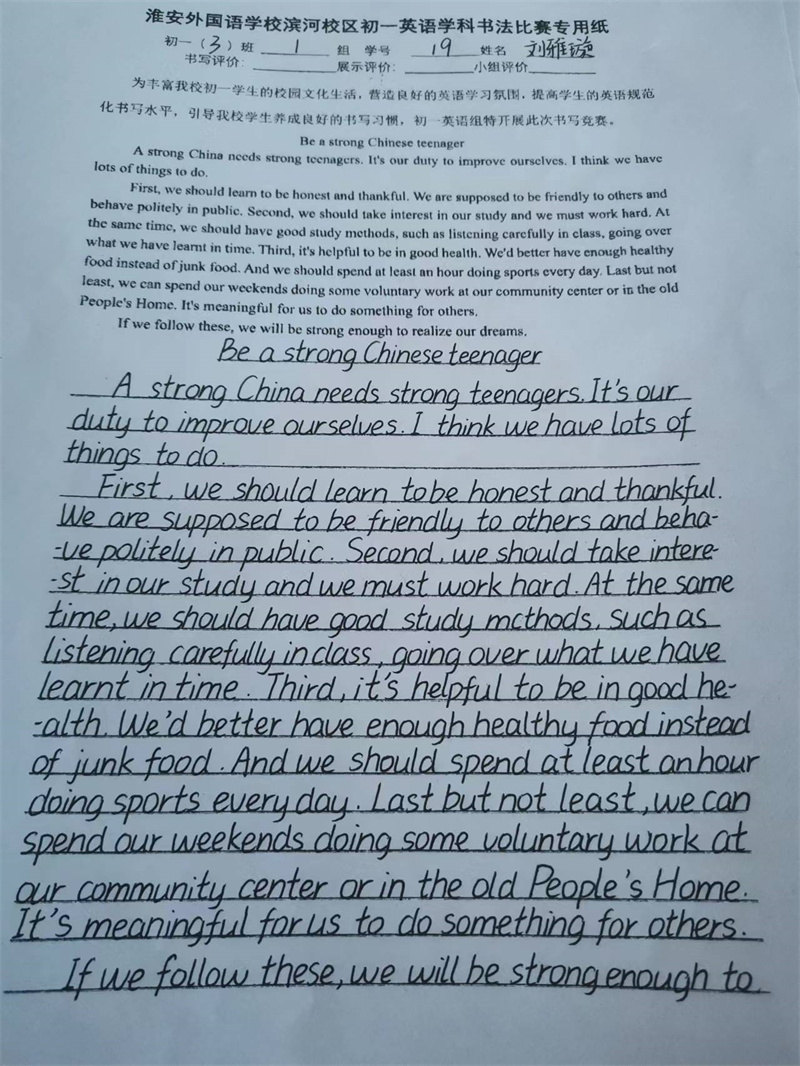 淮安外国语学校滨河校区初一英语学科书法比赛专用纸
初一（3）班 1 组 学号 19 姓名 刘雅璇
书写评价：展示评价：小组评价
为丰富我校初一学生的校园文化生活，营造良好的英语学习氛围，提高学生的英语规范
化书写水平，引导我校学生养成良好的书写习惯，初一英语组特开展此次书写竞赛。
Be a strong Chinese teenager
A strong China needs strong teenagers. It's our duty to improve ourselves. I think we have
lots of things to do.
First, we should learn to be honest and thankful. We are supposed to be friendly to others and
behave politely in public. Second, we should take interest in our study and we must work hard. At
the same time, we should have good study methods, such as listening carefully in class, going over
what we have learnt in time. Third, it's helpful to be in good health. We'd better have enough healthy
food instead of junk food. And we should spend at least an hour doing sports every day. Last but not
least, we can spend our weekends doing some voluntary work at our community center or in the old
People's Home. It's meaningful for us to do something for others.
If we follow these, we will be strong enough to realize our dreams.
Be a strong Chinese teenager
A strong China needs strong teenagers. It's our
duty to improve ourselves. I think we have lots of
things to do.
First, we should learn to be honest and thankful.
We are supposed to be friendly to others and beha-
-ve politely in public. Second, we should take intere-
-st in our study and we must work hard. At the same
time, we should have good study mcthods, such as
listening carefully in class, going over what we have
learnt in time. Third, it's helpful to be in good he-
-alth. We'd better have enough healthy food instead
of junk food. And we should spend at least an hour
doing sports every day. Last but not least, we can
spend our weekends doing some voluntary work at
our community center or in the old People's Home.
It's meaningful for us to do something for others.
If we follow these, we will be strong enough to